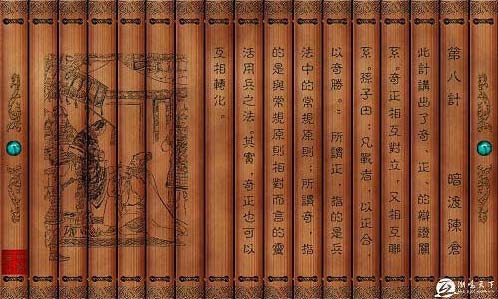 第八計 暗渡陳倉
此計講出了奇、正、的辯證關
系。奇正相互對立，又相互聯
系。孫子曰；凡戰者，以正合，
以奇勝。：所謂正，指的是兵
法中的常規原則；所謂奇，指
的是與常規原則相對而言的靈
活用兵之法。其實，奇正也可以
互相轉化。